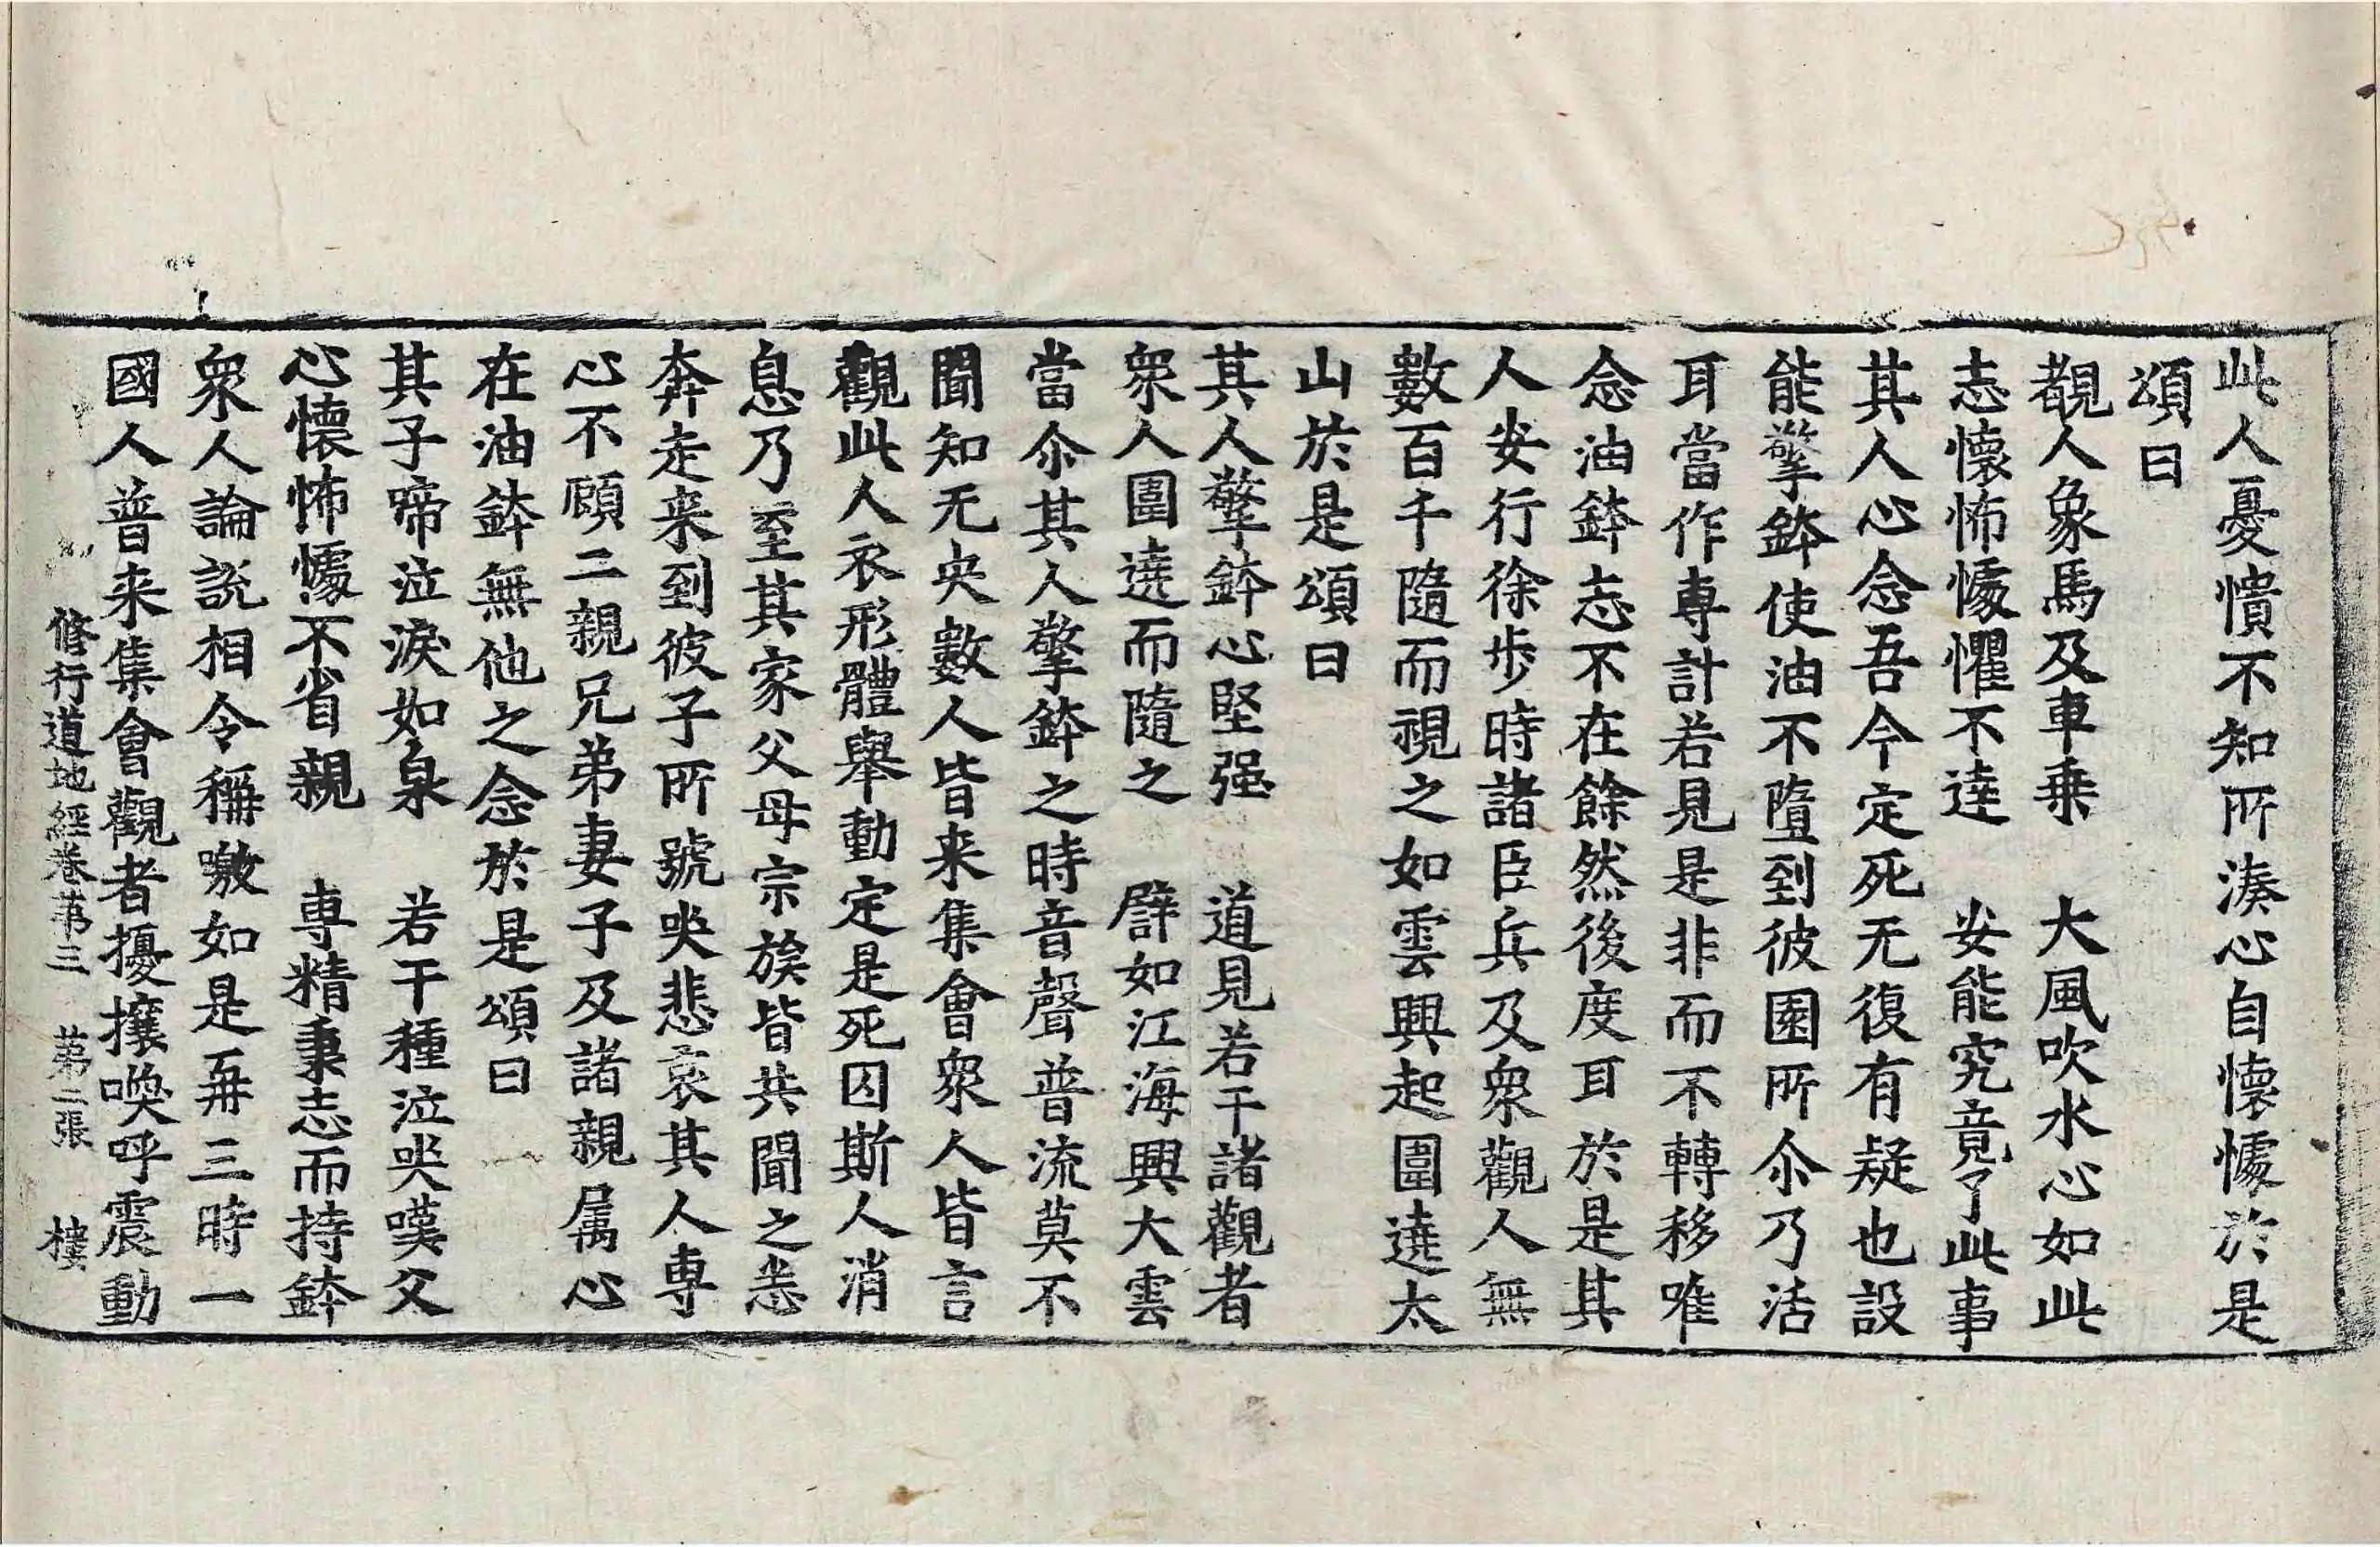 此人憂憒不知所湊心自懷懅於是
頌曰
覩人象馬及車乗　大風吹水心如此
志懷怖懅懼不逹　安能究竟了此事
其人心念吾今定死无復有疑也設
能擎鉢使油不墮到彼園所尒乃活
耳當作専計若見是非而不轉移唯
念油鉢志不在餘然後度耳於是其
人安行徐步時諸臣兵及衆觀人無
數百千隨而視之如雲興起圍遶太
山於是頌曰
其人擎鉢心堅强　道見若干諸觀者
衆人圍遶而隨之　譬如江海興大雲
當尒其人擎鉢之時音聲普流莫不
聞知无央數人皆来集會衆人皆言
觀此人衣形體舉動定是死囚斯人消
息乃至其家父母宗族皆共聞之悉
奔走来到彼子所號哭悲哀其人専
心不顧二親兄弟妻子及諸親属心
在油鉢無他之念於是頌曰
其子啼泣淚如泉　若干種泣哭嘆父
心懷怖懅不省親　専精秉志而持鉢
衆人論說相令稱噭如是再三時一
國人普来集會觀者擾攘喚呼震動
修行道地經卷苐三　苐二張　樓